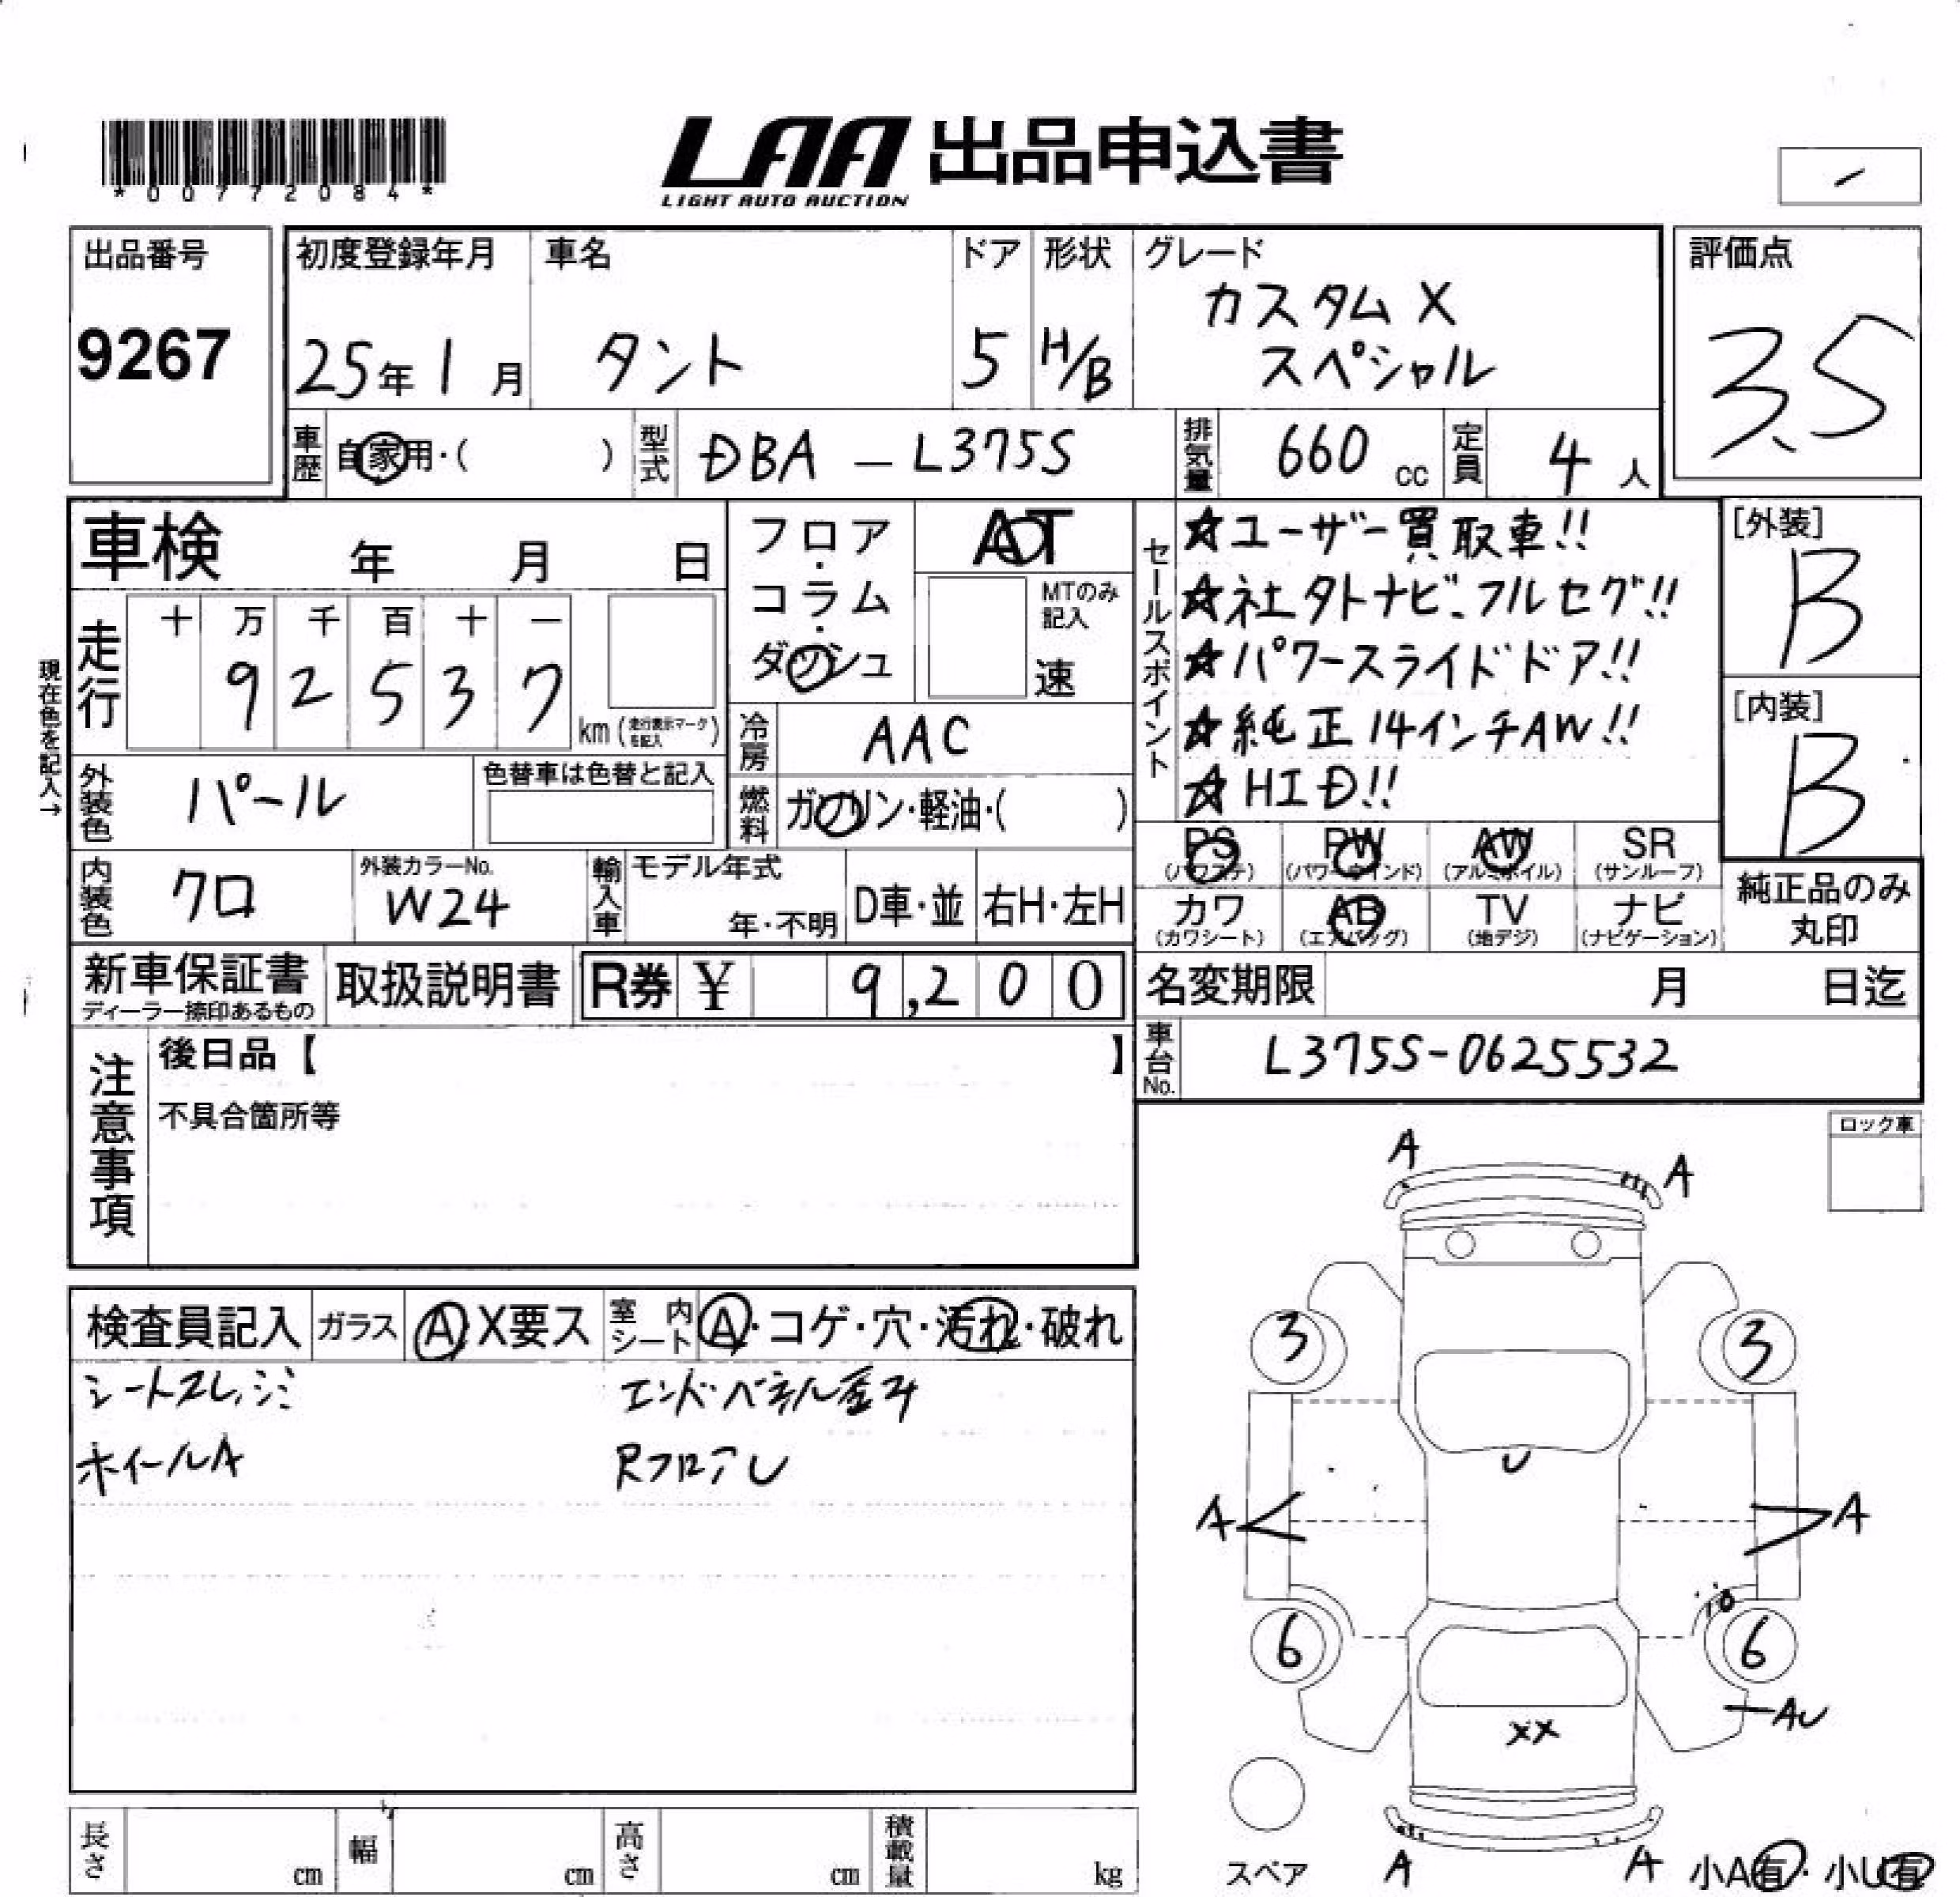 *00772084*
LAA 出品申込書
LIGHT AUTO AUCTION
出品番号
9267
初度登録年月
25年 1月
車名
タント
ドア
5
形状
H/B
グレード
カスタム X
スペシャル
評価点
3.5
車歴
自家用・( )
型式
DBA - L375S
排気量
660 cc
定員
4 人
車検 年 月 日
フロア・コラム・ダッシュ
AT
MTのみ記入
速
セールスポイント
☆ユーザー買取車!!
☆社外ナビ、フルセグ!!
☆パワースライドドア!!
☆純正14インチAW!!
☆HID!!
[外装]
B
[内装]
B
現在色を記入→
走行
十 万 千 百 十 一
9 2 5 3 7
km (走行表示マークを記入)
冷房
AAC
外装色
パール
色替車は色替と記入
燃料
ガソリン・軽油・( )
内装色
クロ
外装カラーNo.
W24
輸入車
モデル年式
年・不明
D車・並
右H・左H
PS
(パワステ)
PW
(パワーウインド)
AW
(アルミホイル)
SR
(サンルーフ)
カワ
(カワシート)
AB
(エアバッグ)
TV
(地デジ)
ナビ
(ナビゲーション)
純正品のみ
丸印
新車保証書
ディーラー捺印あるもの
取扱説明書
R券 ¥ 9,200
名変期限 月 日迄
車台No.
L375S-0625532
注意事項
後日品【 】
不具合箇所等
ロック車
検査員記入
ガラス
A X要ス
室内シート
A・コゲ・穴・汚れ・破れ
シートスレ、シミ
エンドパネル歪み
ホイールA
RフロアU
A
A
3
3
U
A
A
6
6
AU
XX
スペア
A
A
小A有・小U有
長さ cm
幅 cm
高さ cm
積載量 kg